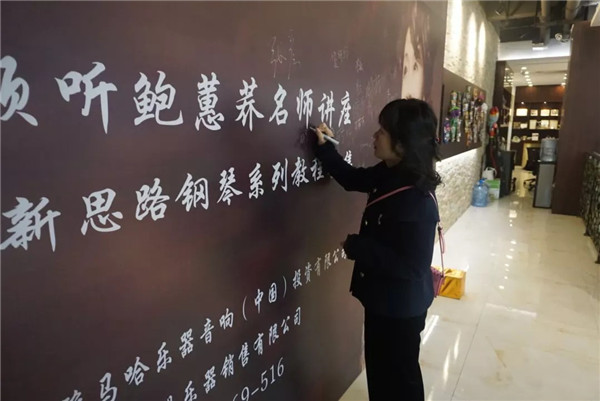 听鲍蕙荞名师讲座
新思路钢琴系列教程
马哈乐器音响（中国）投资有限公
乐器销售有限公司
9-516